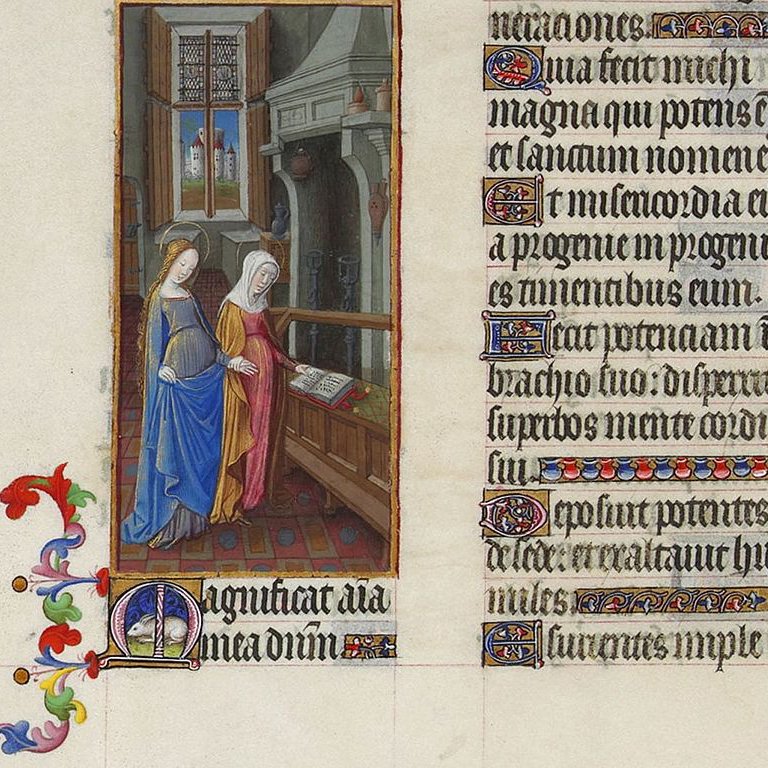 Magnificat aīa
mea dnm̄
neraciones.
Quia fecit michi
magna qui potens ē
et sanctum nomen e
Et misericordia ei
a progenie in progeni
es timentibus eum.
Fecit potenciam ī
brachio suo: dispers
superbos mente cordi
sui.
Deposuit potentes
de sede: et exaltauit hu
miles.
Esurientes imple